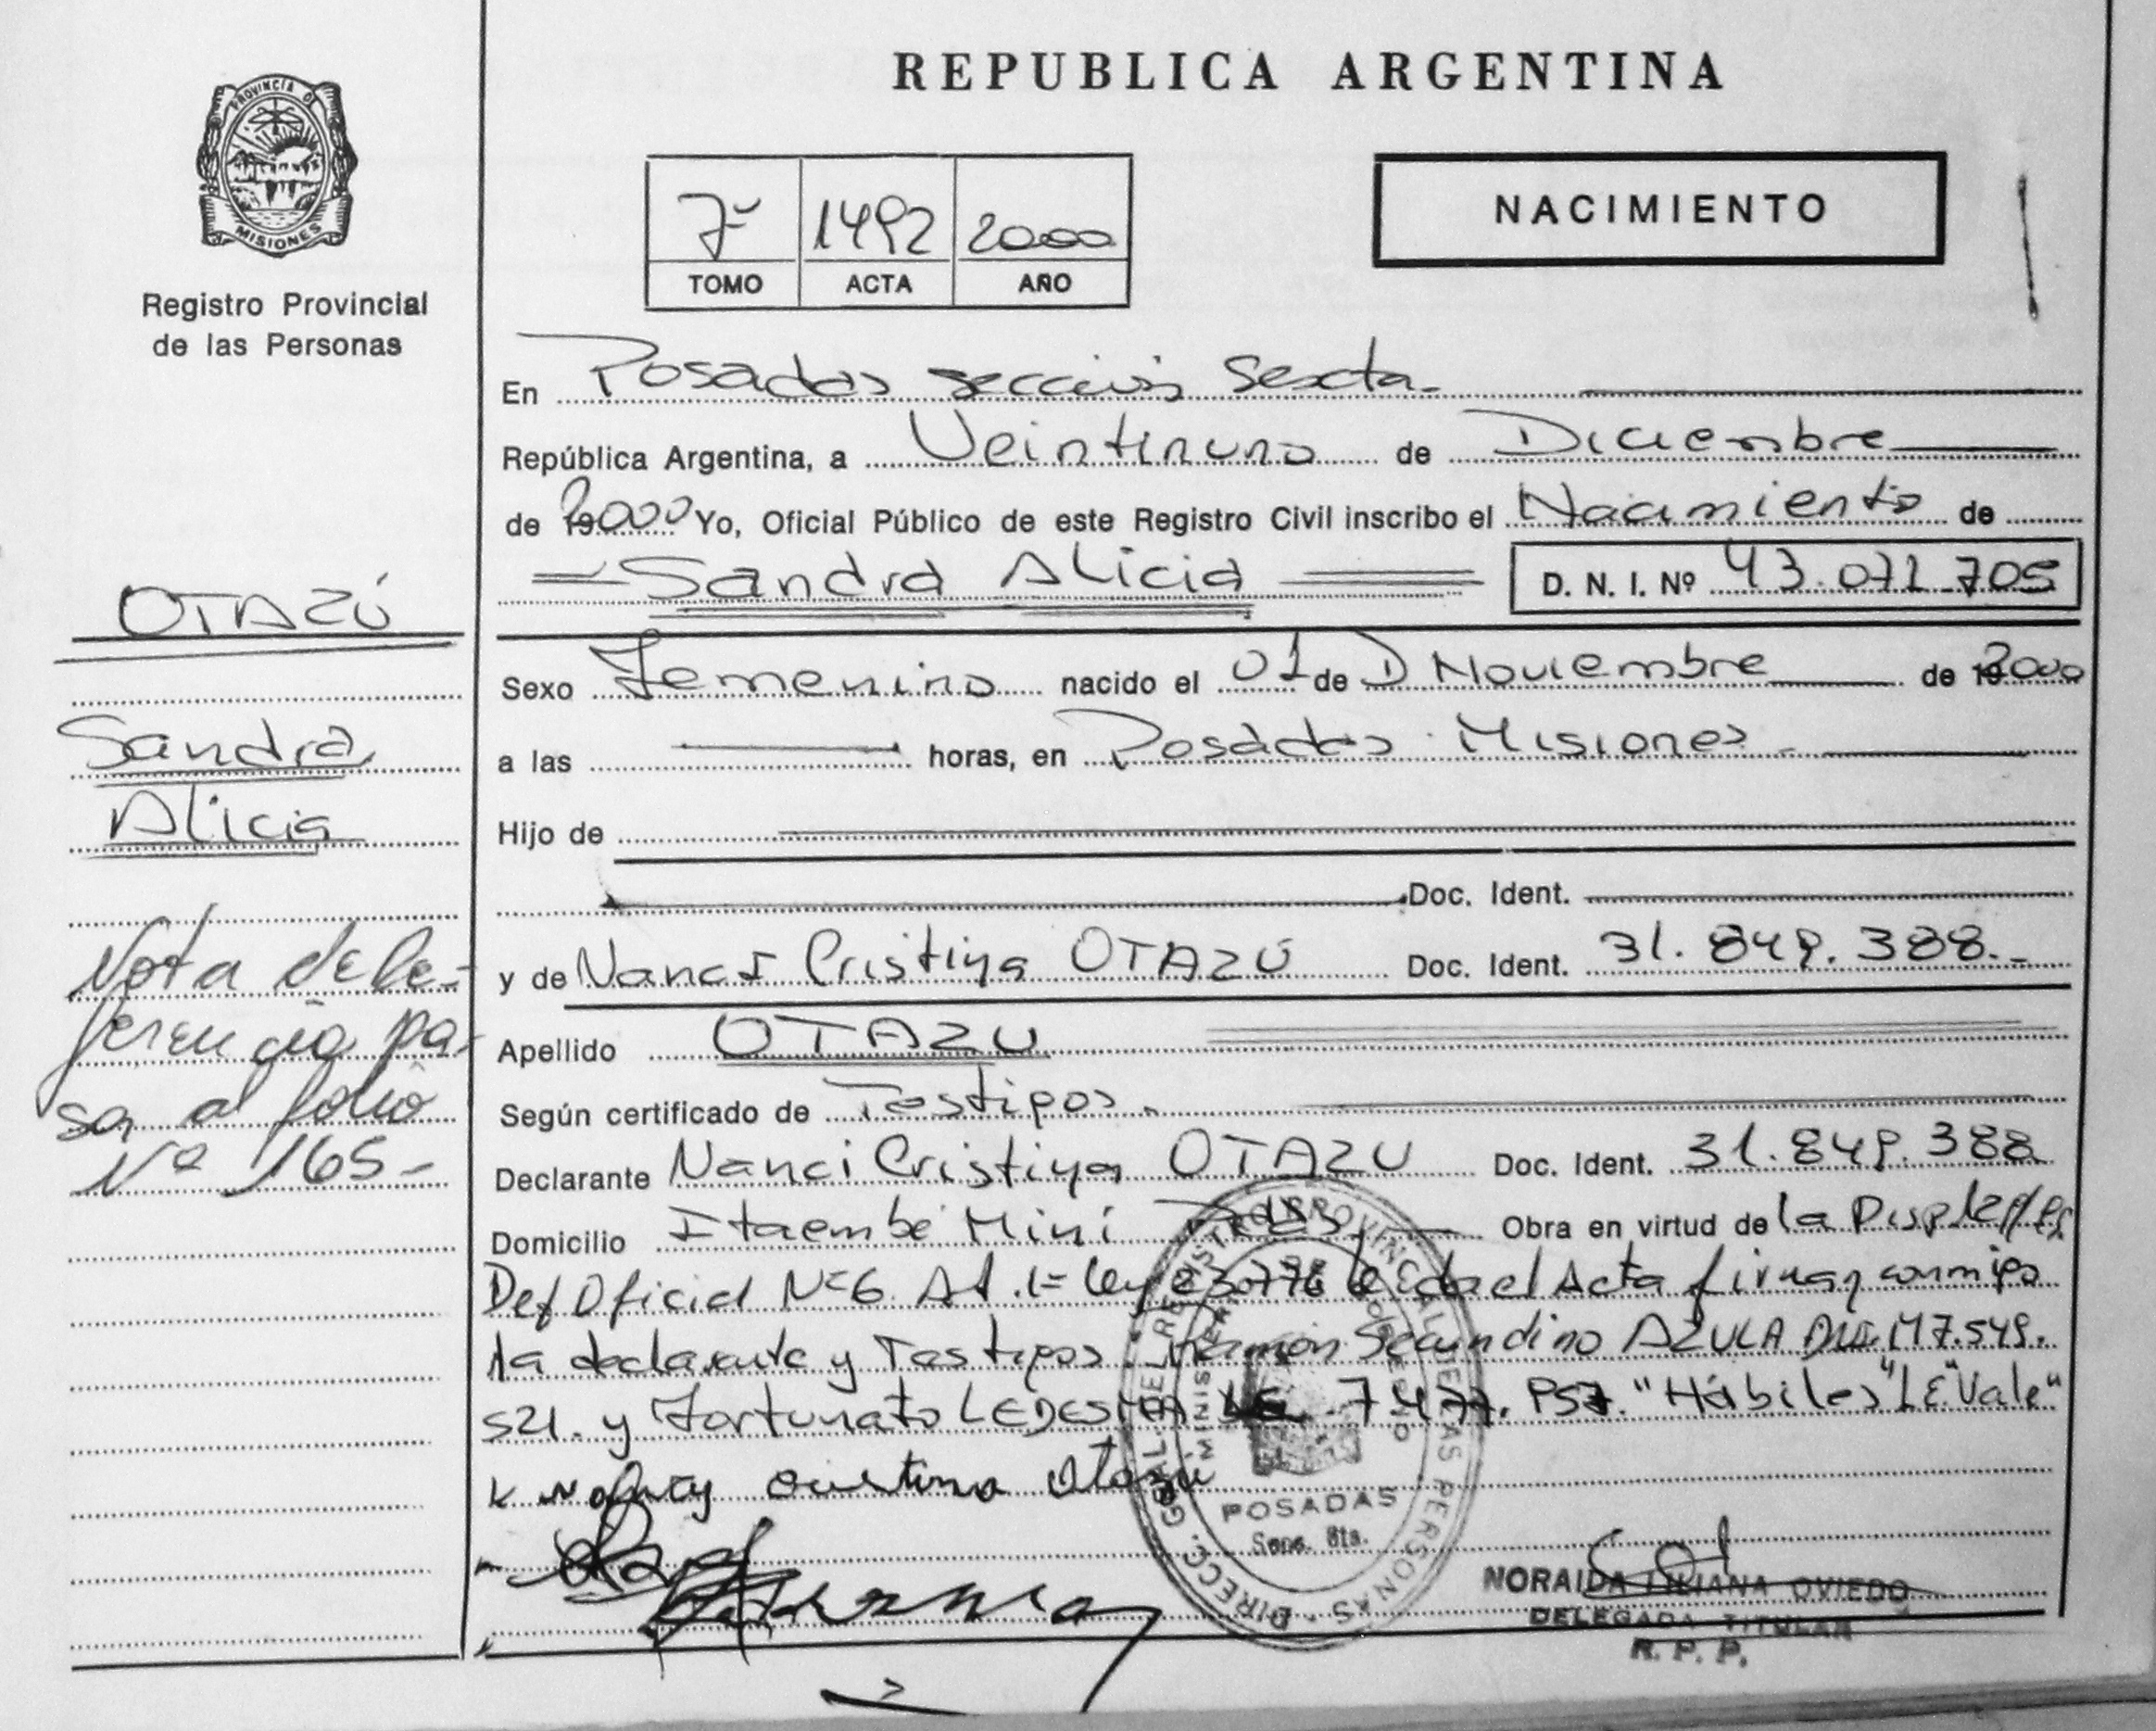 REPUBLICA ARGENTINA
PROVINCIA D
MISIONES
Registro Provincial
de las Personas
7º 1492 2000
TOMO ACTA AÑO
NACIMIENTO
En Posadas sección Sexta.
República Argentina, a Veintinuno de Diciembre
de 2000 Yo, Oficial Público de este Registro Civil inscribo el Nacimiento de
Sandra Alicia D. N. I. Nº 43.071.705
OTAZÚ
Sandra
Alicia
Sexo Femenino nacido el 01 de D Noviembre de 2000
a las horas, en Posadas Misiones.
Hijo de
Doc. Ident.
y de Nanci Cristina OTAZÚ Doc. Ident. 31.849.388.-
Apellido OTAZU
Según certificado de Testigos.
Declarante Nanci Cristina OTAZU Doc. Ident. 31.849.388
Domicilio Itaembé Miní Obra en virtud de la
Def Oficial Nº 6 Leida el Acta firman conmigo
la declarante y Testigos Ramón Secundino AZULA 17.549.
521. y Fortunato LEDESMA "Hábiles" "LE" Vale"
Nota de Re-
ferencia pa-
sa al folio
Nº 165-
Otazú
DIRECC. GRAL. DEL REGISTRO PROVINCIAL DE LAS PERSONAS
POSADAS
Secc. 6ta.
NORAIDA LILIANA OVIEDO
DELEGADA TITULAR
R. P. P.